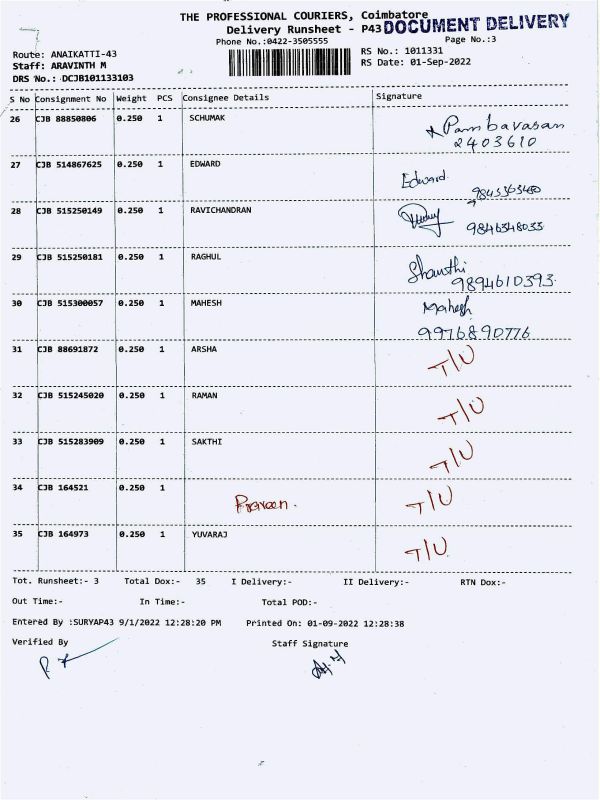 THE PROFESSIONAL COURIERS, Coimbatore
Delivery Runsheet - P43 DOCUMENT DELIVERY
Phone No.:0422-3505555 Page No.:3
Route: ANAIKATTI-43 RS No.: 1011331
Staff: ARAVINTH M RS Date: 01-Sep-2022
DRS No.: DCJB101133103
S No Consignment No Weight PCS Consignee Details Signature
26 CJB 88850806 0.250 1 SCHUMAK Pambavasan
2403610
27 CJB 514867625 0.250 1 EDWARD Edward
28 CJB 515250149 0.250 1 RAVICHANDRAN
9846348033
29 CJB 515250181 0.250 1 RAGHUL Shanthi
9894610393
30 CJB 515300057 0.250 1 MAHESH Mahesh
9976890776
31 CJB 88691872 0.250 1 ARSHA T/U
32 CJB 515245020 0.250 1 RAMAN T/U
33 CJB 515283909 0.250 1 SAKTHI T/U
34 CJB 164521 0.250 1 Praveen. T/U
35 CJB 164973 0.250 1 YUVARAJ T/U
Tot. Runsheet:- 3 Total Dox:- 35 I Delivery:- II Delivery:- RTN Dox:-
Out Time:- In Time:- Total POD:-
Entered By :SURYAP43 9/1/2022 12:28:20 PM Printed On: 01-09-2022 12:28:38
Verified By Staff Signature